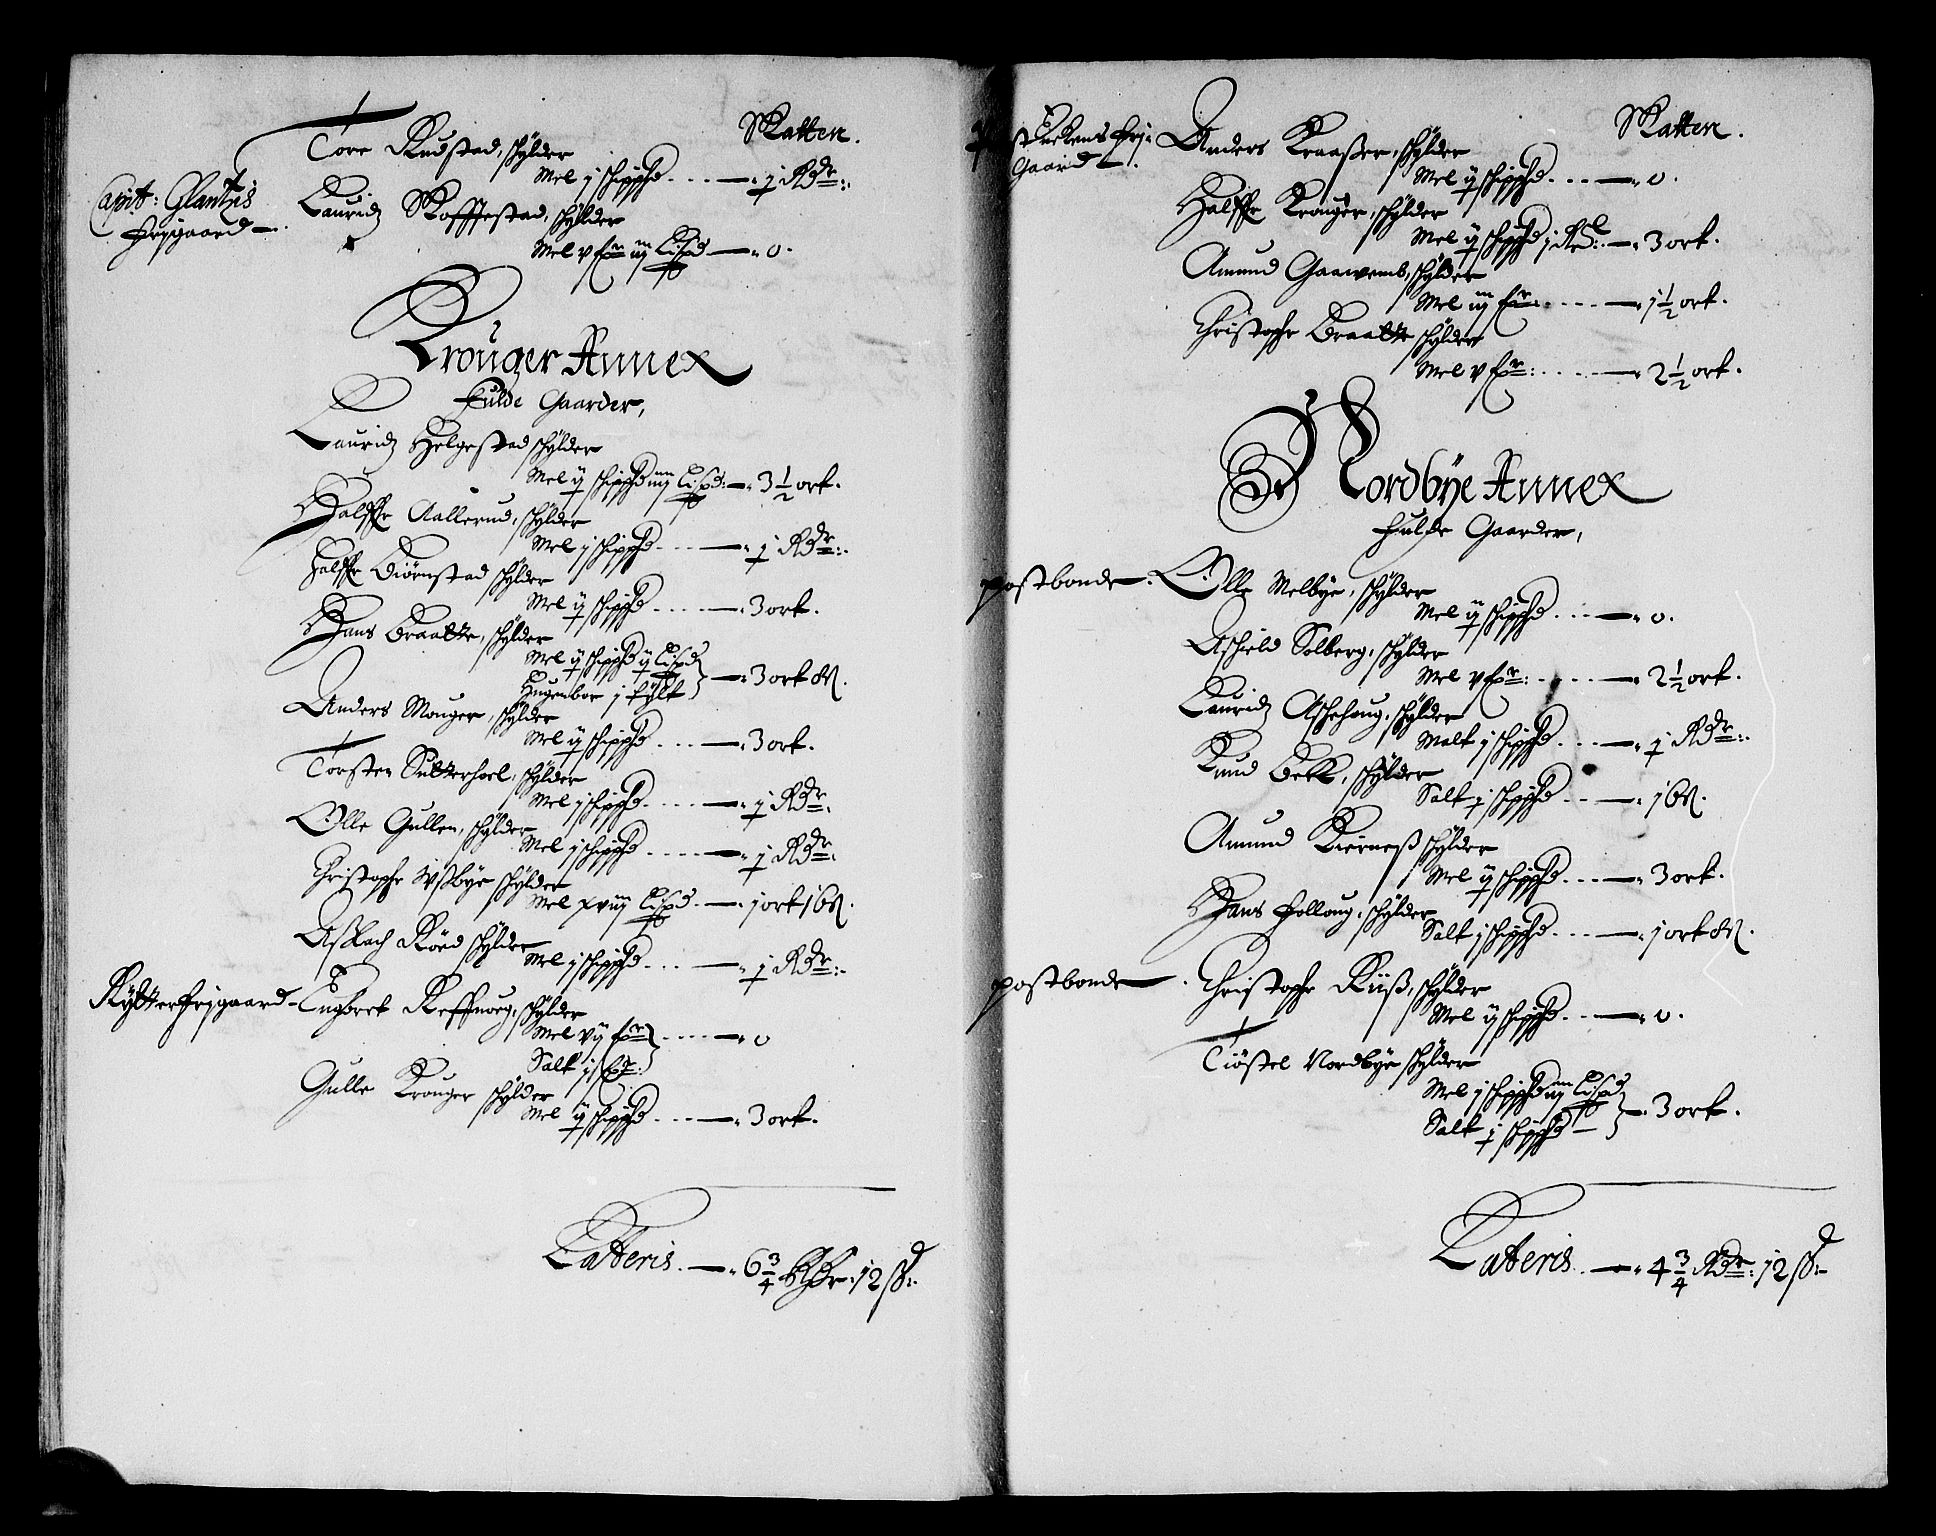 Skatten.
Tore Rudstad, schylder
Mel j schippd ---- j Rdr:
Capit: Glantzis
frjgaard
Lauridz Skofftestad, schylder
Mel v fr iiij Lispd - 0.
Krouger Annex
Fulde Gaarder,
Lauridz Helgestad schylder
Mel ij schippd iiij Lispd: - 3 1/2 ort.
Halffr Aallerud, schylder
Mel j schippd ---- j Rdr:
Halffr Biörnstad schylder
Mel ij schippd ---- 3 ort.
Hans Braatte, schylder
Mel ij schippd ij Lispd
Hugenbor j fylt - 3 ort 8 s.
Anders Mouger, schylder
Mel ij schippd ---- 3 ort.
Torsten Sutterhoel, schylder
Mel j schippd ---- j Rdr.
Olle Gullen, schylder
Mel j schippd ---- j Rdr.
Christopher Wssbye schylder
Mel xviij Lispd - 1 ort 16 s.
Asslach Röed schylder
Mel j schippd ---- j Rdr:
Rytterfrjgaard - Engbret Reffnoeg, schylder
Mel vij fr
Salt j fr: ---- 0
Gulle Krouger schylder
Mel ij schippd ---- 3 ort.
Latteris. - 6 3/4 Rdr: 12 s:
Skatten.
Gaard
Anders Kraaßer, schylder
Mel ij schippd ---- 0.
Halffr Krouger, schylder
Mel ij schippd j fr: - 3 ort.
Amund Gaarvemb, schylder
Mel iij fr: ---- 1 1/2 ort.
Christopher Braatte schylder
Mel v fr: ---- 2 1/2 ort.
Nordbye Annex
Fulde Gaarder,
postbonde. Olle Melbye, schylder
Mel ij schippd ---- 0.
Aschield Solberg, schylder
Mel v fr: ---- 2 1/2 ort.
Lauridz Aschehaug, schylder
Malt j schippd ---- j Rdr:
Knud Beck, schylder
Salt j schippd ---- 16 s.
Amund Kierneß schylder
Mel ij schippd ---- 3 ort.
Hans Follaug, schylder
Salt j schippd ---- 1 ort 8 s.
postbonde. Christopher Riiß, schylder
Mel ij schippd ---- 0.
Tiöstel Nordbye schylder
Mel j schippd iiij Lispd
Salt j schippd - 3 ort.
Latteris. - 4 3/4 Rdr: 12 s: